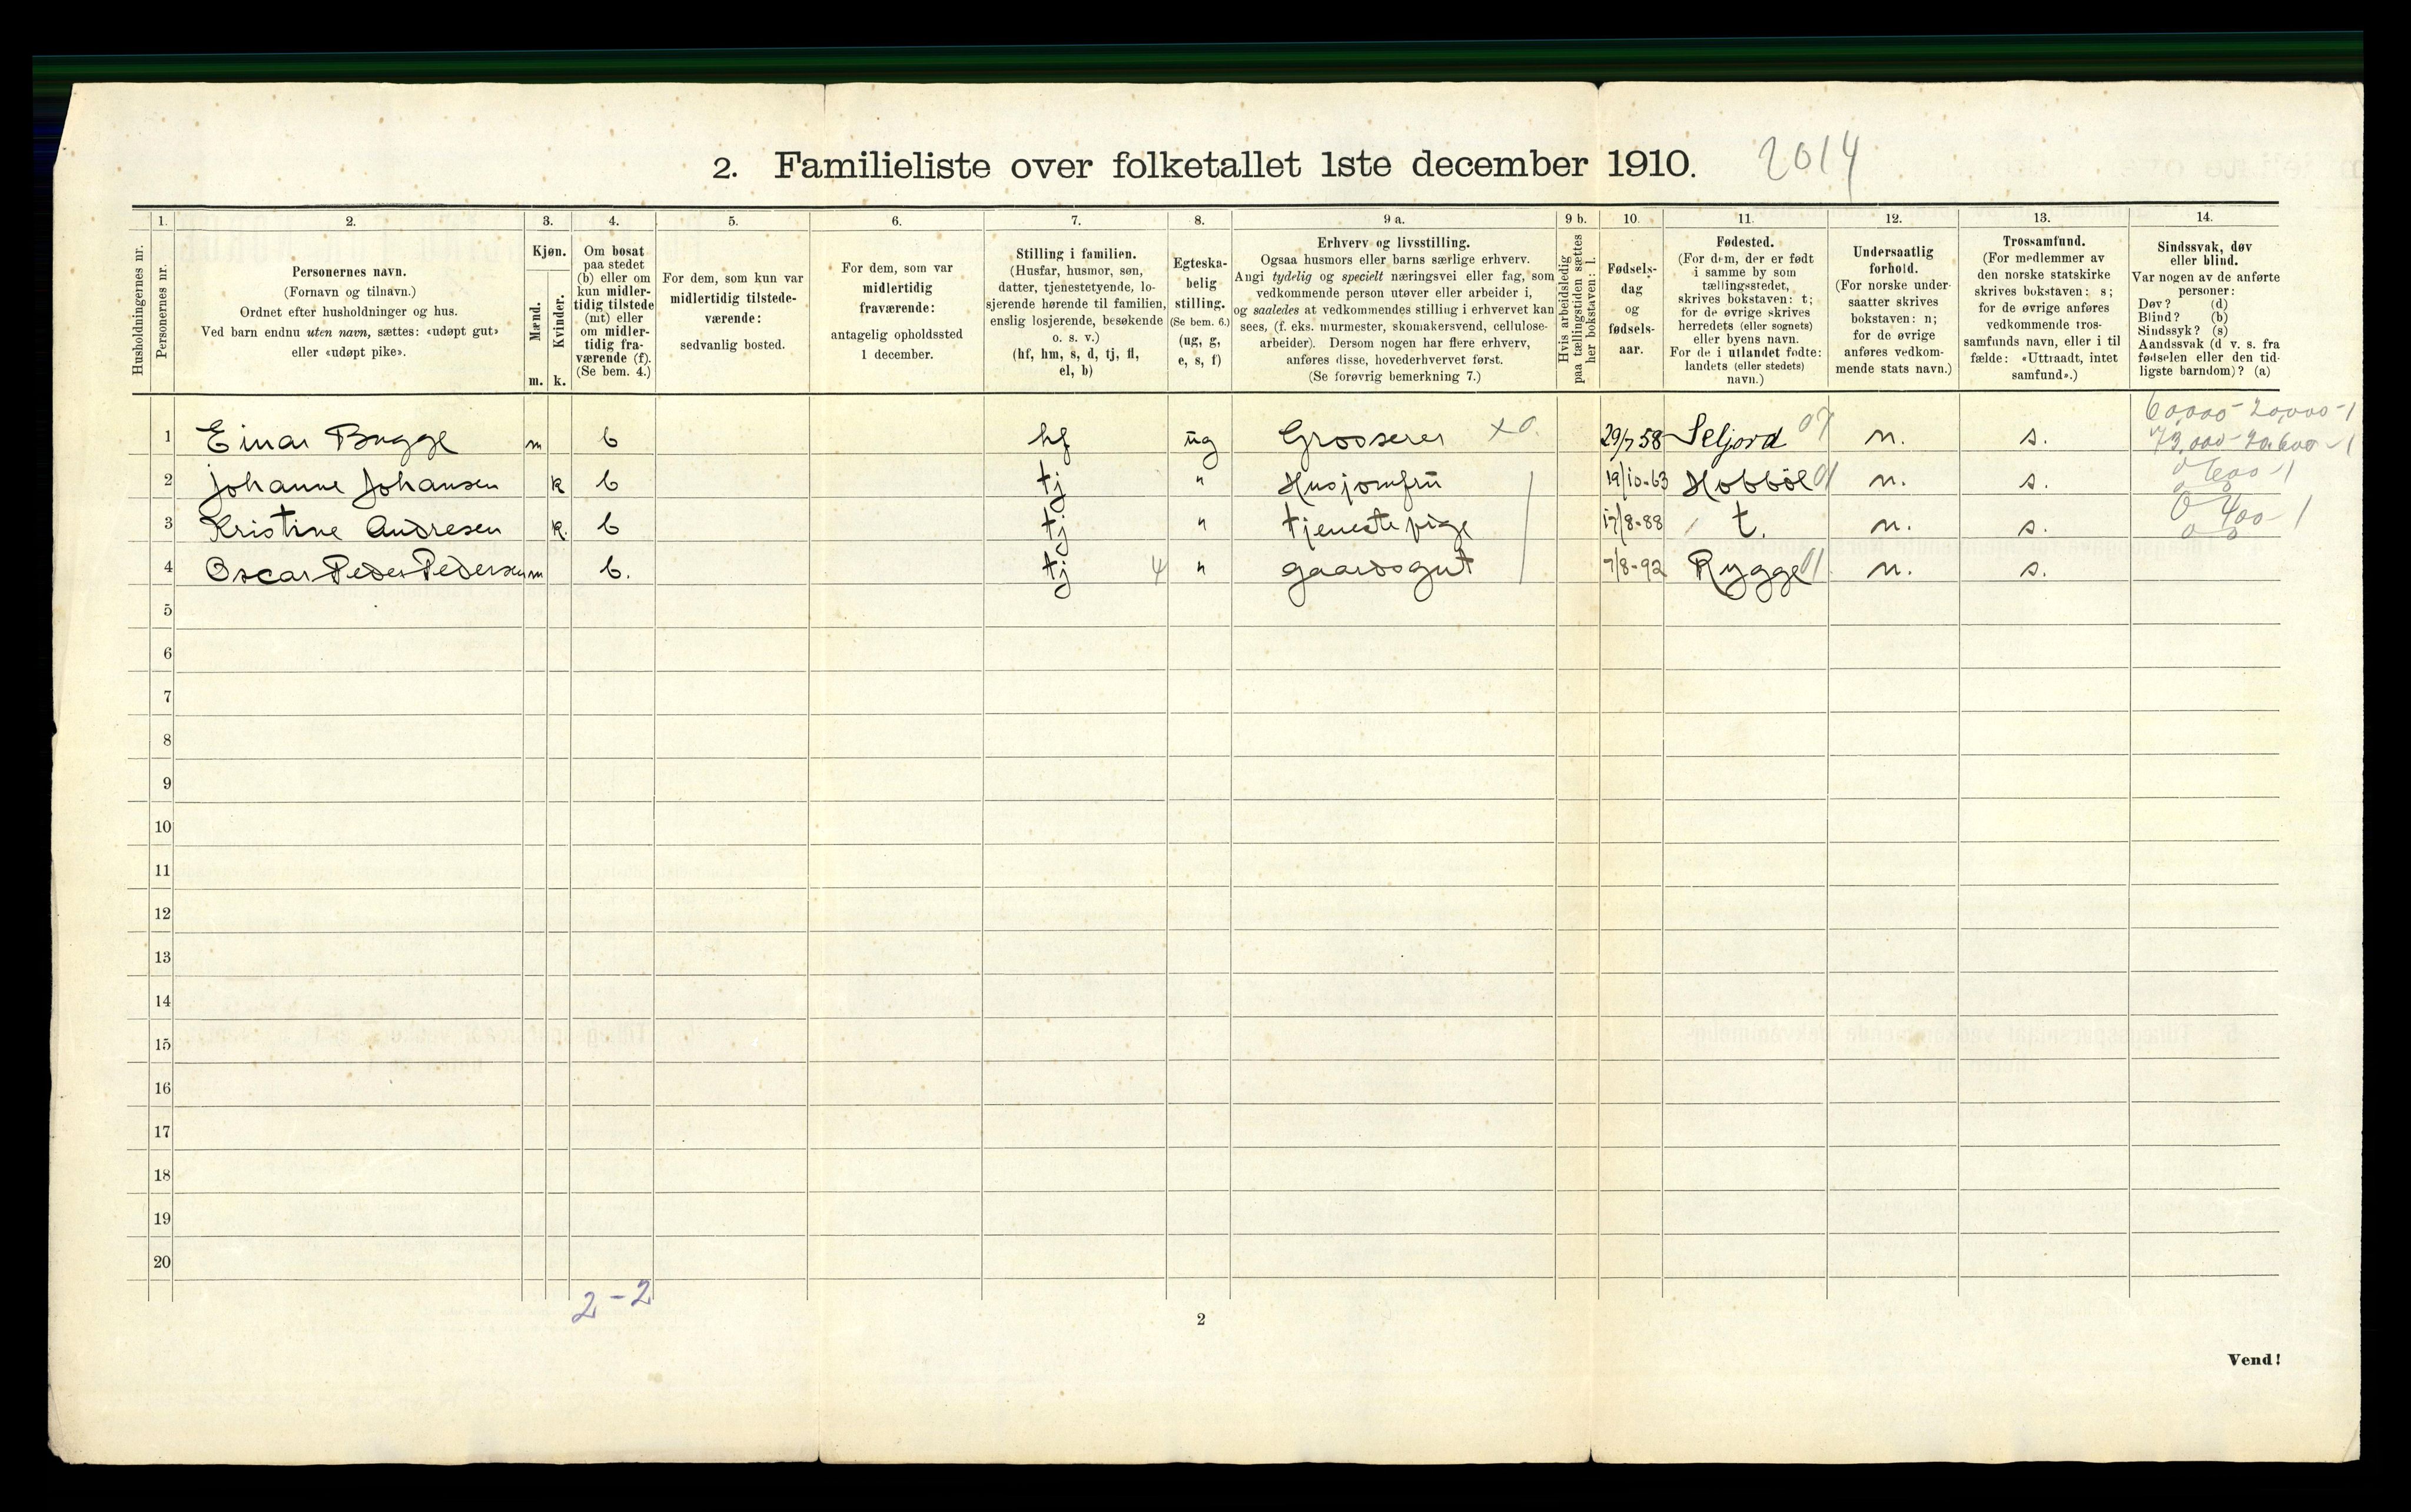 2. Familieliste over folketallet 1ste december 1910. 2014
Husholdningernes nr.
1.
Personernes nr.
2.
Personernes navn.
(Fornavn og tilnavn.)
Ordnet efter husholdninger og hus.
Ved barn endnu uten navn, sættes: «udøpt gut»
eller «udøpt pike».
3.
Kjøn.
Mænd.
Kvinder.
m. k.
4.
Om bosat
paa stedet
(b) eller om
kun midler-
tidig tilstede
(mt) eller
om midler-
tidig fra-
værende (f).
(Se bem. 4.)
5.
For dem, som kun var
midlertidig tilstede-
værende:
sedvanlig bosted.
6.
For dem, som var
midlertidig
fraværende:
antagelig opholdssted
1 december.
7.
Stilling i familien.
(Husfar, husmor, søn,
datter, tjenestetyende, lo-
sjerende hørende til familien,
enslig losjerende, besøkende
o. s. v.)
(hf, hm, s, d, tj, fl,
el, b)
8.
Egteska-
belig
stilling.
(Se bem. 6.)
(ug, g,
e, s, f)
9 a.
Erhverv og livsstilling.
Ogsaa husmors eller barns særlige erhverv.
Angi tydelig og specielt næringsvei eller fag, som
vedkommende person utøver eller arbeider i,
og saaledes at vedkommendes stilling i erhvervet kan
sees, (f. eks. murmester, skomakersvend, cellulose-
arbeider). Dersom nogen har flere erhverv,
anføres disse, hovederhvervet først.
(Se forøvrig bemerkning 7.)
9 b.
Hvis arbeidsledig
paa tællingstiden sættes
her bokstaven: l.
10.
Fødsels-
dag
og
fødsels-
aar.
11.
Fødested.
(For dem, der er født
i samme by som
tællingsstedet,
skrives bokstaven: t;
for de øvrige skrives
herredets (eller sognets)
eller byens navn.
For de i utlandet fødte:
landets (eller stedets)
navn.)
12.
Undersaatlig
forhold.
(For norske under-
saatter skrives
bokstaven: n;
for de øvrige
anføres vedkom-
mende stats navn.)
13.
Trossamfund.
(For medlemmer av
den norske statskirke
skrives bokstaven: s;
for de øvrige anføres
vedkommende tros-
samfunds navn, eller i til-
fælde: «Uttraadt, intet
samfund».)
14.
Sindssvak, døv
eller blind.
Var nogen av de anførte
personer:
Døv? (d)
Blind? (b)
Sindssyk? (s)
Aandssvak (d v. s. fra
fødselen eller den tid-
ligste barndom)? (a)
60,000-20,000-1
1 Einar Bugge m b hf ug Grosserer x0. 29/7 58 Seljord 07 n. s. 73,000-20,600-1
2 Johanne Johansen k b tj " Husjomfru 19/10-63 Hobböl 01 n. s. 0 600-1
3 Kristine Andresen k. b tj " tjenestepige 17/8-88 t. n. s. 0 400-1
4 Oscar Peder Pedersen m b. tj 4 " gaardsgut 7/8-92 Rygge 01. n. s.
5
6
7
8
9
10
11
12
13
14
15
16
17
18
19
20
2-2
2
Vend!